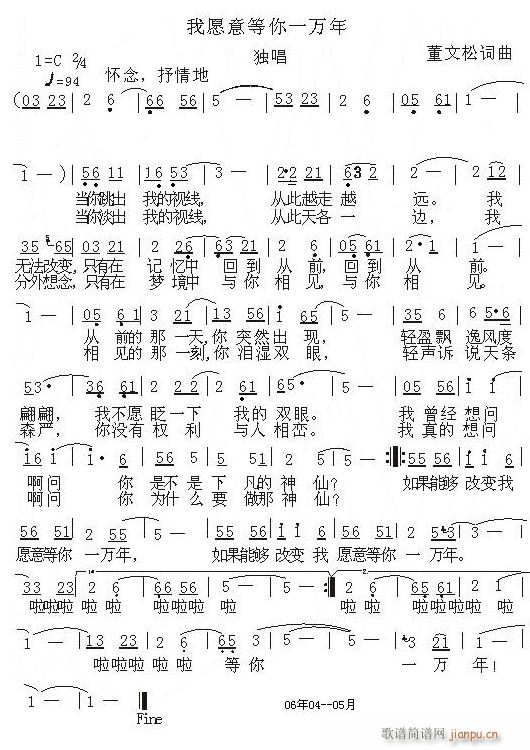 我愿意等你一万年
1=C 2/4 独唱 董文松词曲
♩=94 怀念，抒情地
(03 23 | 2 6 | 66 56 | 5 — | 53 23 | 2 6 | 05 61 |
1 — ) | 56 11 | 16 53 | 3 — | 2 2 21 | 6 3 2 | 2 — | 2 12 |
当你跳出 我的视线， 从此越走 越 远。 我
当你淡出 我的视线， 从此天各 一 边， 我
35 65 | 03 21 | 2 26 | 05 61 | 2 6 | 05 61 | 2· 1 |
无法改变，只有在 记 忆中 回到 从 前，回到 从 前。
分外想念，只有在 梦 境中 与你 相 见，与你 相 见。
1 — | 05 61 | 2 3 | 21 | 35 61 | 5 — | 5 — | 05 56 |
从 前的 那 一天，你 突然出 现， 轻盈飘 逸风度
相 见的 那 一刻，你 泪湿双 眼， 轻声诉 说天条
翩翩， 我不愿 眨一下 我的 双眼。 我 曾经 想问
森严， 你没有 权 利 与人 相恋。 我 真的 想问
啊问 你 是不 是下 凡的 神 仙？ 如果能够 改变我
啊问 你 为什 么要 做那 神 仙？
56 51 | 2 55 | 5 — | 56 51
愿意等你 一万年， 如果能够 改变 我 愿意等你 一万年。
33 23 | 2 6 | 66 56 | 5 — | 5 — :| 2 6 | 65 61 | 1 —
啦啦啦啦 啦 啦 啦啦啦啦 啦 啦 啦 啦啦啦啦 啦
1 — | 13 23 | 2 6 | 65 | 5 — | 5 — | 3 21 | 1 —
啦啦 啦啦 啦 啦 等 你 一 万 年！
1 — | 1 — ‖
Fine 06年04--05月
歌谱简谱网
jianpu.cn